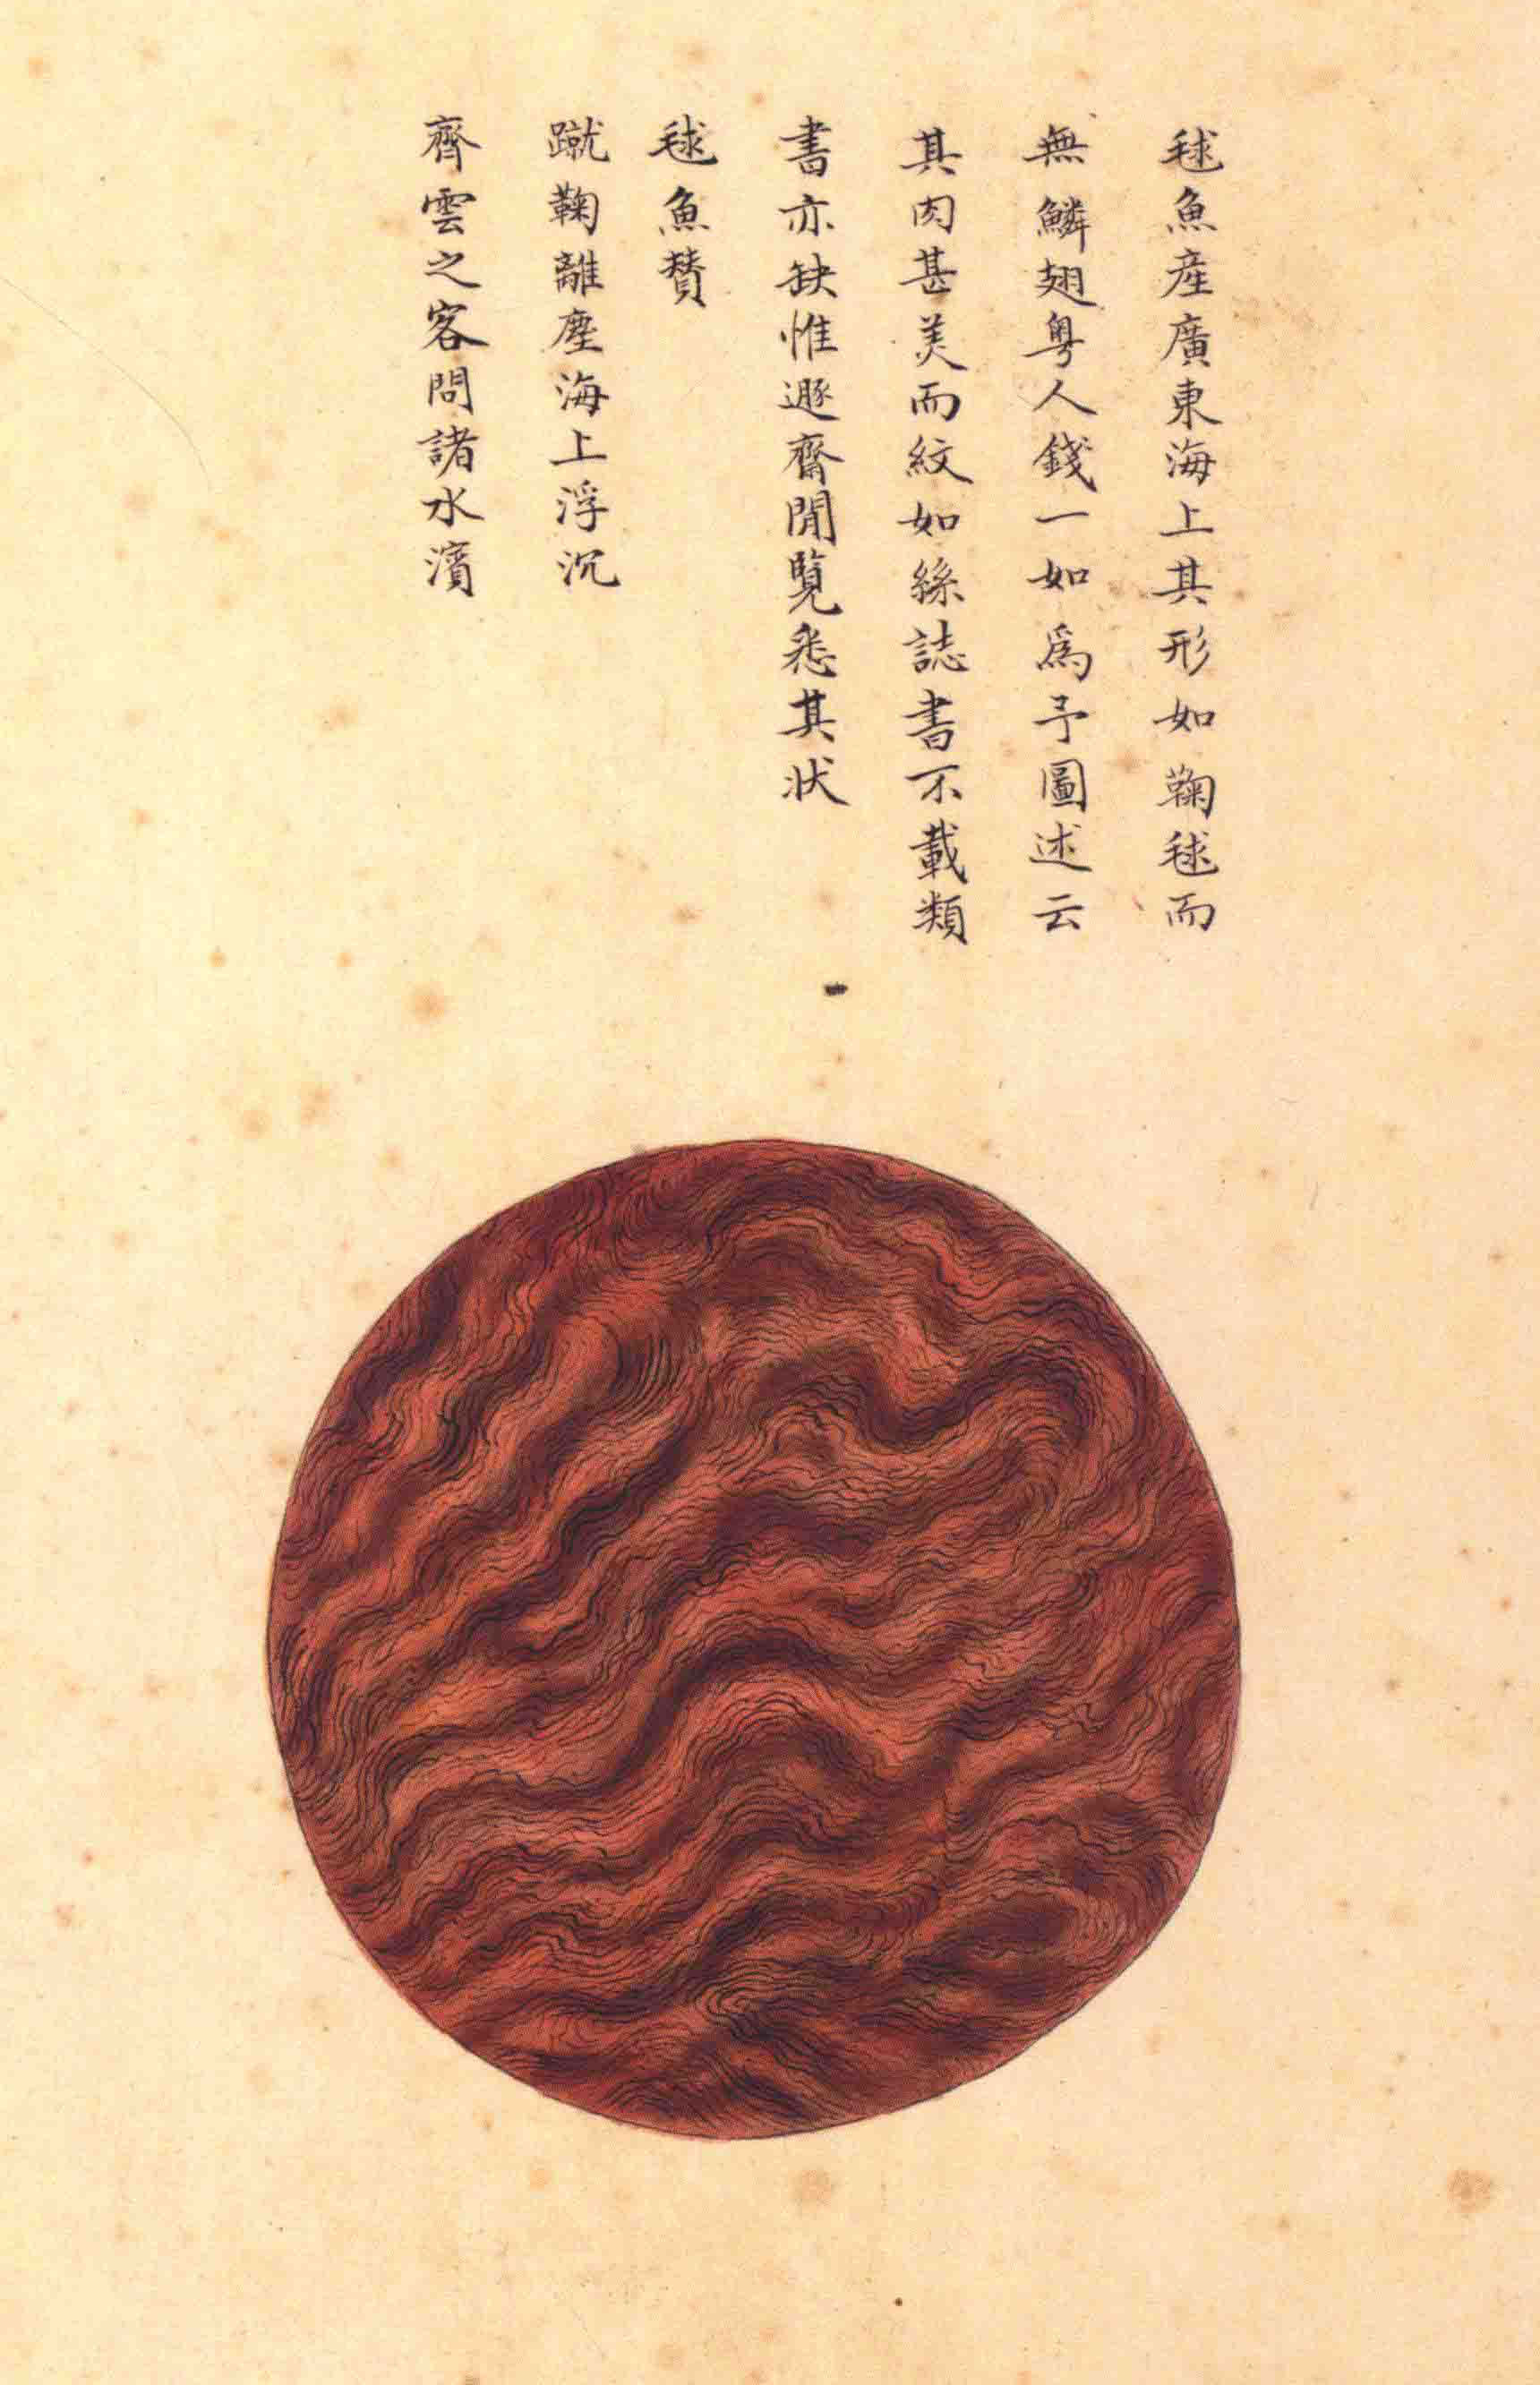 毬魚產廣東海上其形如鞠毬而
無鱗翅粵人錢一如為予圖述云
其肉甚美而紋如絲誌書不載類
書亦缺惟遯齋閒覽悉其狀
毬魚賛
蹴鞠離塵海上浮沉
齊雲之客問諸水濱